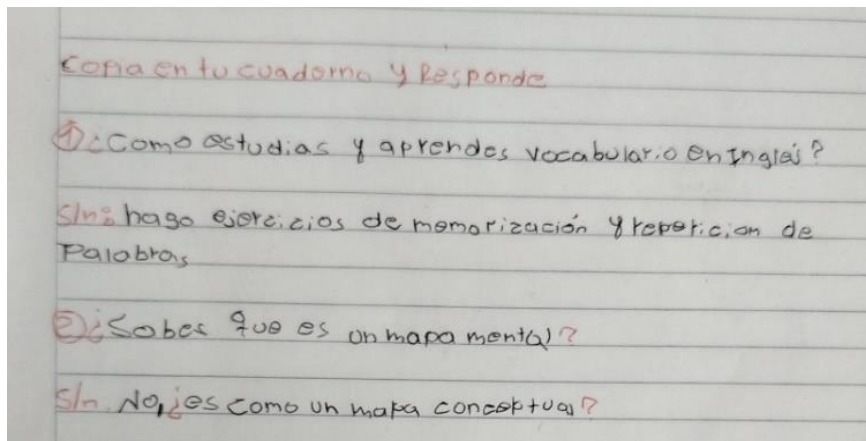 Copia en tu cuaderno y Responde
① ¿Como estudias y aprendes vocabulario en Inglés?
S/n: hago ejercicios de memorización y repeticion de
Palabras
② ¿Sabes que es un mapa mental?
S/n. No, ¿es como un mapa conceptual?